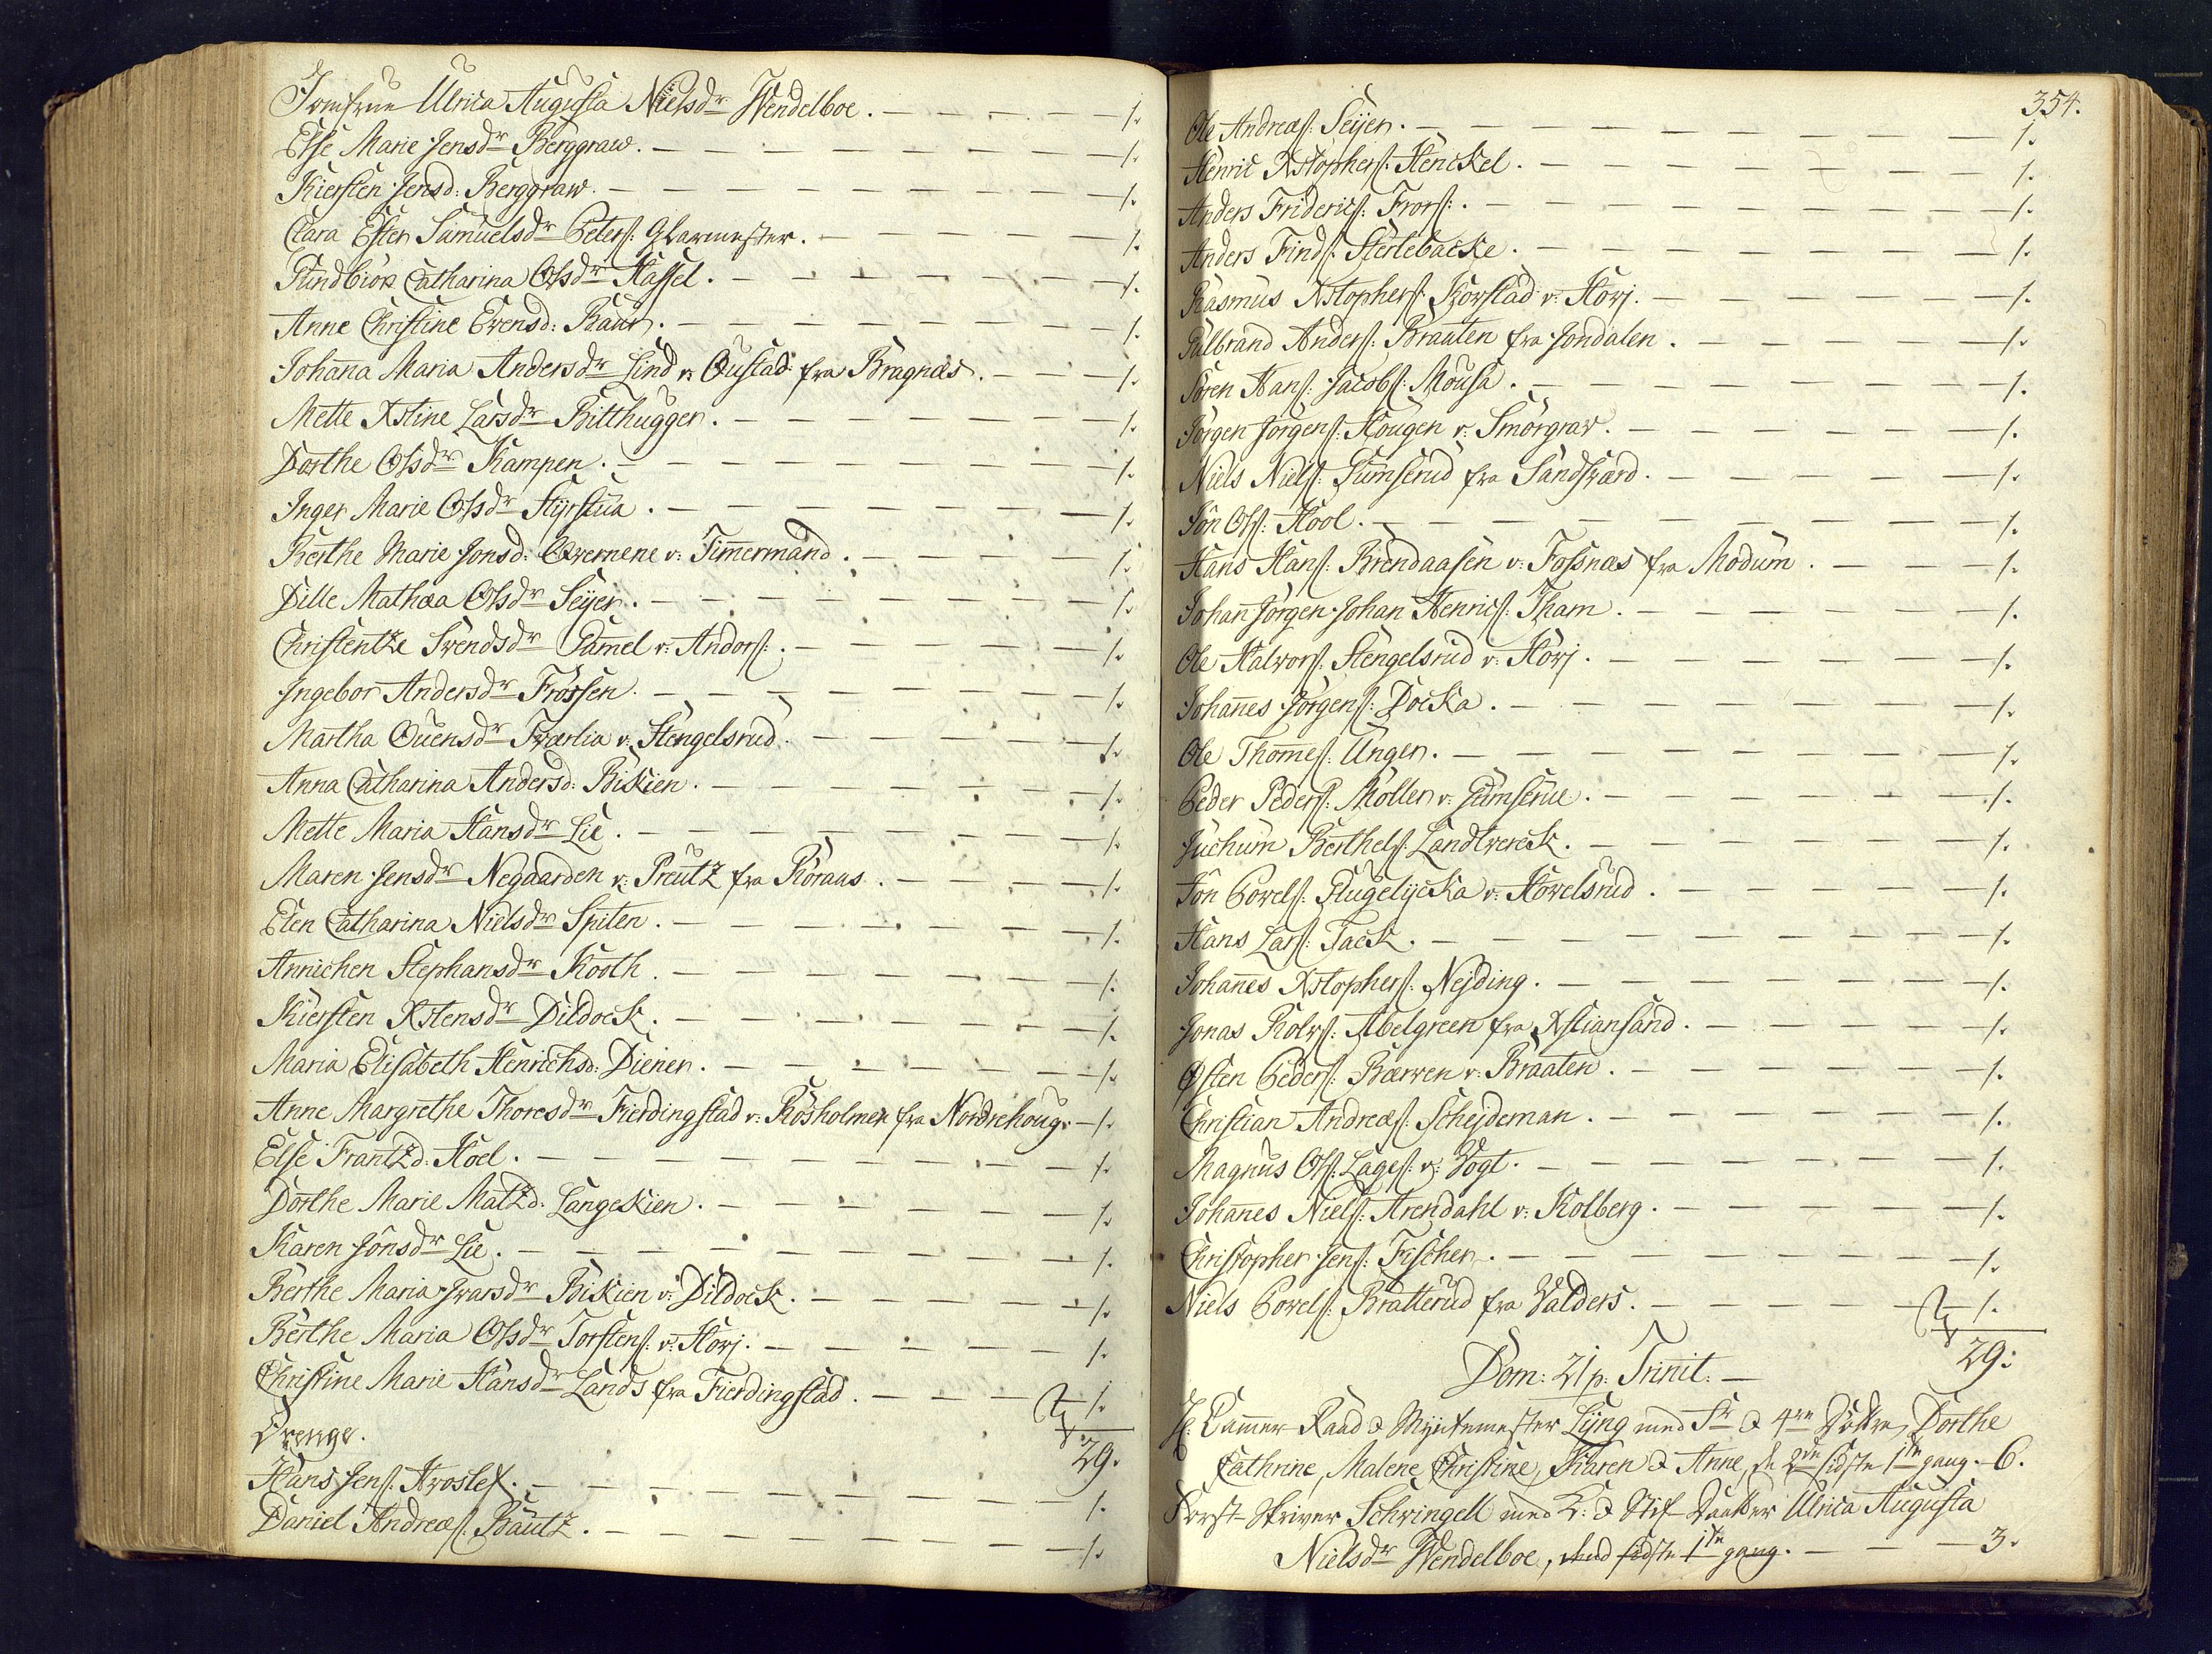 Jomfrue Ulrica Augusta Nielsdr Wendelboe. 1.
Else Marie Jensdr Berggraw. 1.
Kiersten Jensd: Berggraw. 1.
Clara Ester Samuelsdr Peters: Glarmester. 1.
Gundbiör Catharina Olsdr Hassel. 1.
Anne Christine Evensd: Baur. 1.
Johana Maria Andersdr Lind v: Oustad fra Bragnæs. 1.
Mette Xstine Larsdr Bitthugger. 1.
Dorthe Olsdr Kampen. 1.
Inger Marie Olsdr Styrstua. 1.
Berthe Marie Jonsd: Qvernene v: Timermand. 1.
Dille Mathea Olsdr Seyer. 1.
Christentze Svendsdr Gamel v: Anders: 1.
Ingebor Andersdr Frossen. 1.
Martha Ouensdr Tværlia v: Stengelsrud. 1.
Anna Catharina Andersd: Bikien. 1.
Mette Maria Hansdr Lie. 1.
Maren Jensdr Negaarden v: Preutz fra Röraas. 1.
Elen Catharina Nielsdr Spiten. 1.
Annichen Stephansdr Kooth. 1.
Kiersten Xstensdr Dildock. 1.
Maria Elisabeth Henrichsd: Diener. 1.
Anne Margrethe Thoresdr Fierdingstad v: Rosholmen fra Nordrehoug. 1.
Else Frantzd: Hoel. 1.
Dorthe Marie Matzd: Langeskien. 1.
Karen Jönsdr Lie. 1.
Berthe Maria Ivarsdr Bikien v: Dildock. 1.
Berthe Maria Olsdr Torstens: v: Hovj. 1.
Christine Marie Hansdr Lands fra Fierdingstad. 1.
29.
Drenge.
Hans Jens: Avoslef. 1.
Daniel Andreæs: Bautz. 1.
354.
Ole Andreæs: Seyer. 1.
Henric Xstophers: Henckel. 1.
Anders Friderics: Frors: 1.
Anders Finds: Sterlebacke. 1.
Rasmus Xstophers: Skorstad v: Hovj. 1.
Gulbrand Anders: Braaten fra Jondalen. 1.
Sören Hans: Jacobs: Mousa. 1.
Jörgen Jörgens: Hougen v: Smörgrav. 1.
Niels Niels: Gumserud fra Sandsværd. 1.
Jön Ols: Hool. 1.
Hans Hans: Brendaasen v: Fossnæs fra Modum. 1.
Johan Jörgen Johan Henrics: Tham. 1.
Ole Halvors: Stengelsrud v: Hovj. 1.
Johanes Jörgens: Docka. 1.
Ole Thomes: Unger. 1.
Peder Peders: Möller v: Gumserue. 1.
Juchum Berthels: Landtverck. 1.
Jön Povels: Plugelycka v: Hovelsrud. 1.
Hans Lars: Tack. 1.
Johanes Xstophers: Nejding. 1.
Jonas Rolvs: Abelgreen fra Xstiansand. 1.
Østen Peders: Bærven v: Braaten. 1.
Christian Andreæs: Schejdeman. 1.
Magnus Ols: Lages: v: Vogt. 1.
Johanes Niels: Arendahl v: Kolberg. 1.
Christopher Jens: Fischer. 1.
Niels Povels: Bratterud fra Valders. 1.
29:
Dom: 21 p: Trinit:
Hr: Cammer Raad & Myntemester Lyng med Fr & 4re Döttre, Dorthe
Cathrine, Malene Christine, Karen & Anne, de 2de sidste 1ste gang. 6.
Forst-Skriver Schwingell med K: & Stif-Daatter Ulrica Augusta
Nielsdr Wendelboe, sidste 1ste gang. 3.